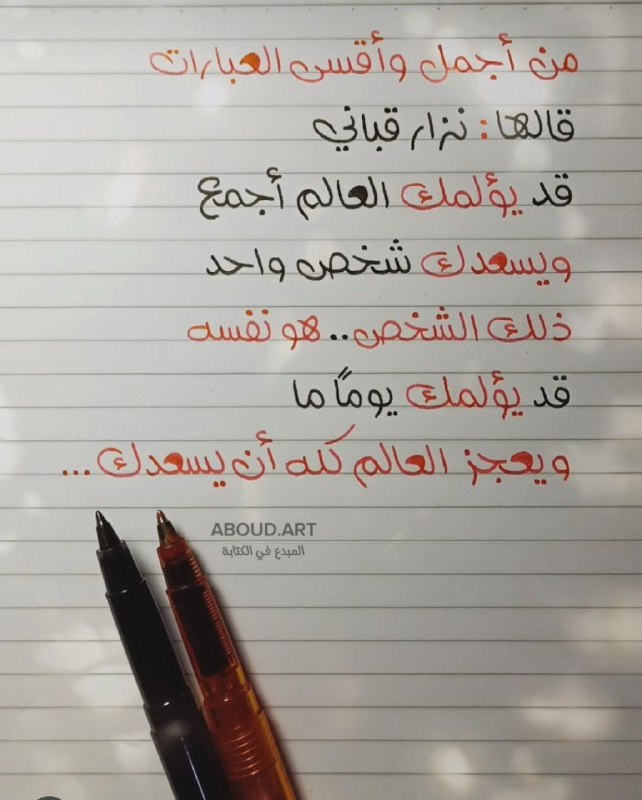 من أجمل وأقسى العبارات
قالها : نزار قباني
قد يؤلمك العالم أجمع
ويسعدك شخص واحد
ذلك الشخص.. هو نفسه
قد يؤلمك يومًا ما
ويعجز العالم كله أن يسعدك ...
ABOUD.ART
المبدع في الكتابة